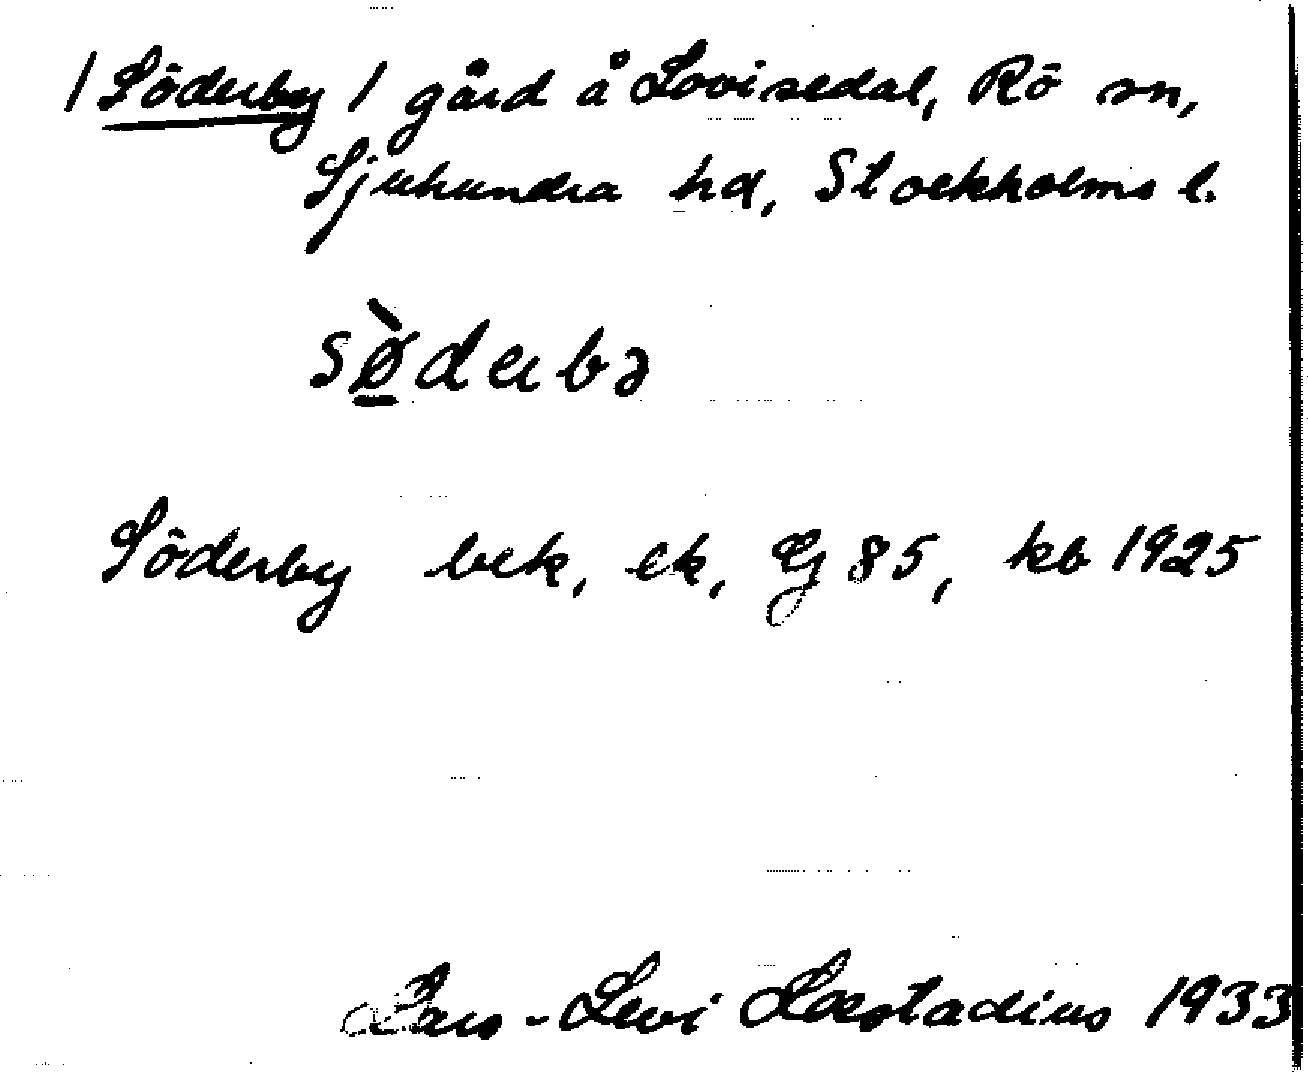 /Söderby/ gård å Lovisedal, Rö sn,
Sjuhundra hd, Stockholms l.
sø̱̀derbə
Söderby bek, ek, Gj 85, kb 1925
Lars-Levi Læstadius 1933